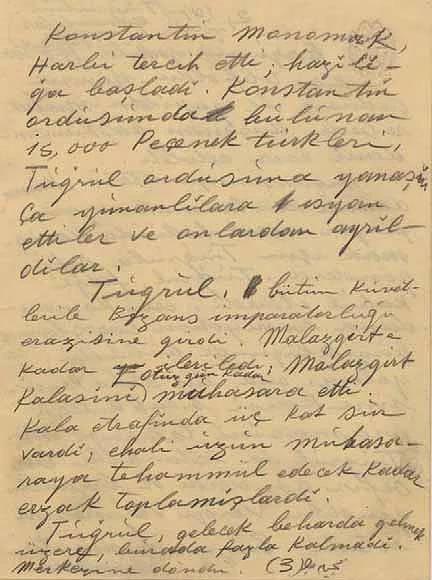 Konstantin Monomak,
Harbi tercih etti; hazili-
ğa başladi. Konstantin
ordüsünda bülünan
15,000 Peçenek türkleri,
Tüğrül ordüsüna yanaşin
ça yünanlilara isyan
ettiler ve onlardan ayril-
dilar.
Tüğrül, bütün küvet-
lerile Bizans imparatorlüğü
erazisine girdi. Malazgirte
kadar ilerledi; Malazgirt
otüz gün kadar
Kalasini muhasara etti.
Kala etrafinda üç kat sür
vardi; ehali üzün mühasa-
raya tehammül edecek kadar
erzak toplamişlardi.
Tüğrül, gelecek beharda gelmek
üzere, bürada fazla kalmadi.
Merkezine döndü. (3)